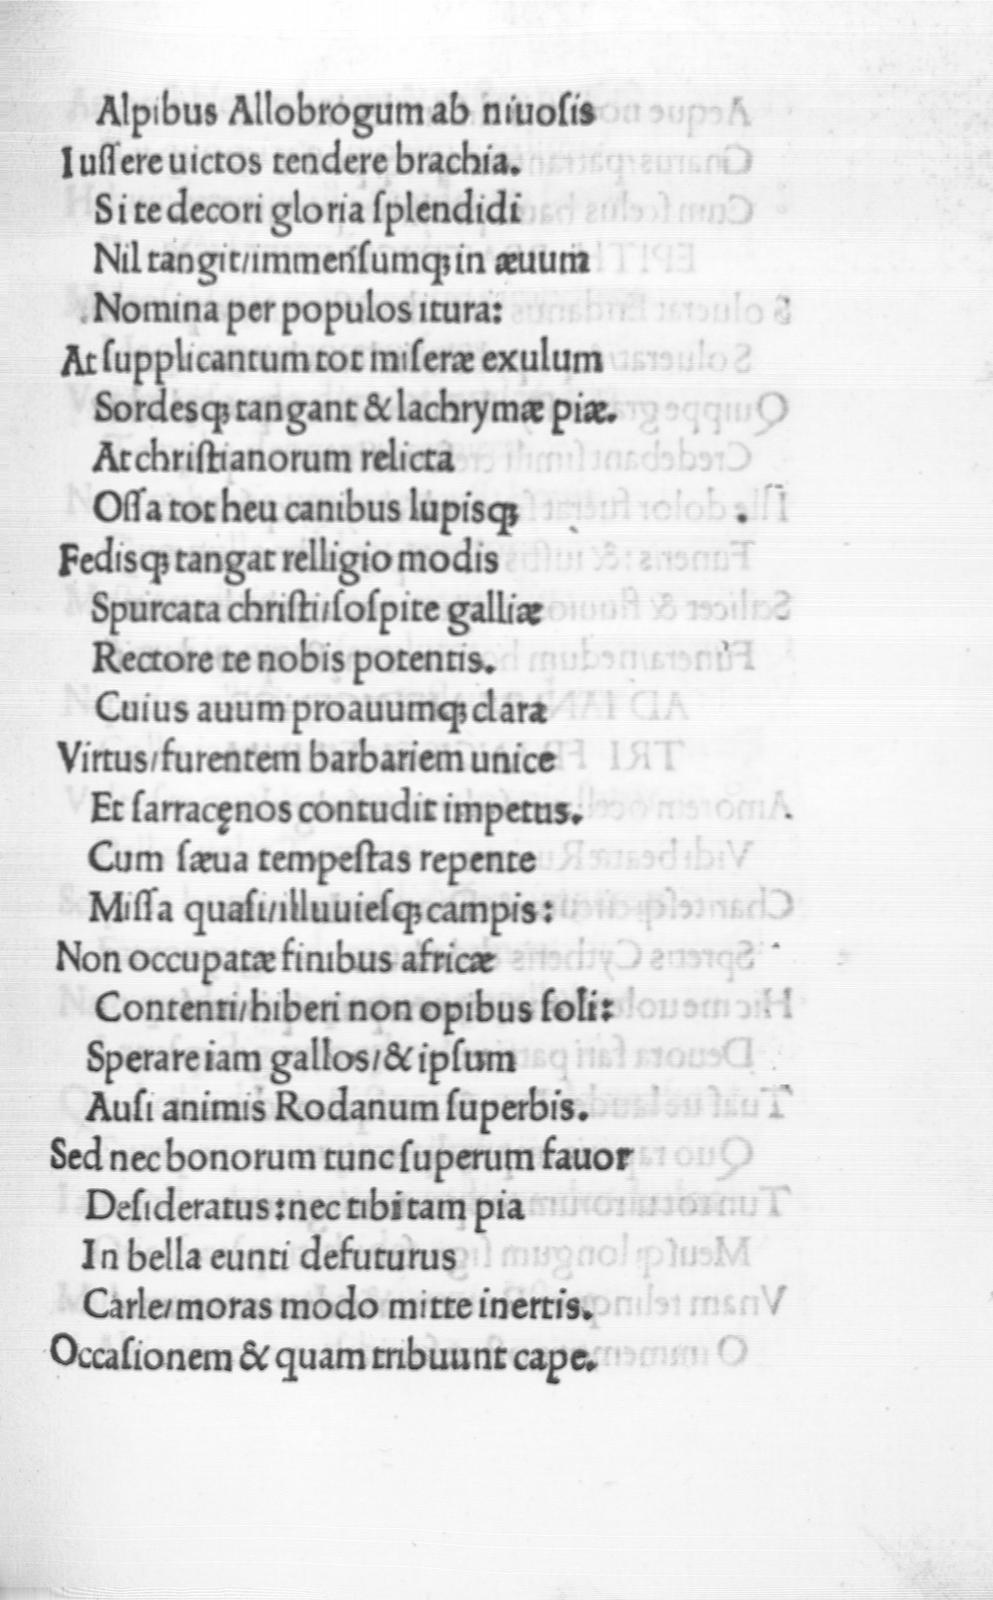 Alpibus Allobrogum ab niuoſis
Iuſſere uictos tendere brachia.
Si te decori gloria ſplendidi
Nil tangit/immenſumqꝫ in æuum
Nomina per populos itura:
At ſupplicantum tot miſeræ exulum
Sordesqꝫ tangant & lachrymæ piæ.
At chriſtianorum relicta
Oſſa tot heu canibus lupisqꝫ
Fedisqꝫ tangat relligio modis
Spurcata chriſti/ſoſpite galliæ
Rectore te nobis potentis.
Cuius auum proauumqꝫ clara
Virtus/furentem barbariem unice
Et ſarracęnos contudit impetus.
Cum ſæua tempeſtas repente
Miſſa quaſi/illuuieſqꝫ campis:
Non occupatæ finibus africæ
Contenti/hiberi non opibus ſoli:
Sperare iam gallos/& ipſum
Auſi animis Rodanum ſuperbis.
Sed nec bonorum tunc ſuperum fauor
Deſideratus:nec tibi tam pia
In bella eunti defuturus
Carle/moras modo mitte inertis.
Occaſionem & quam tribuunt cape.